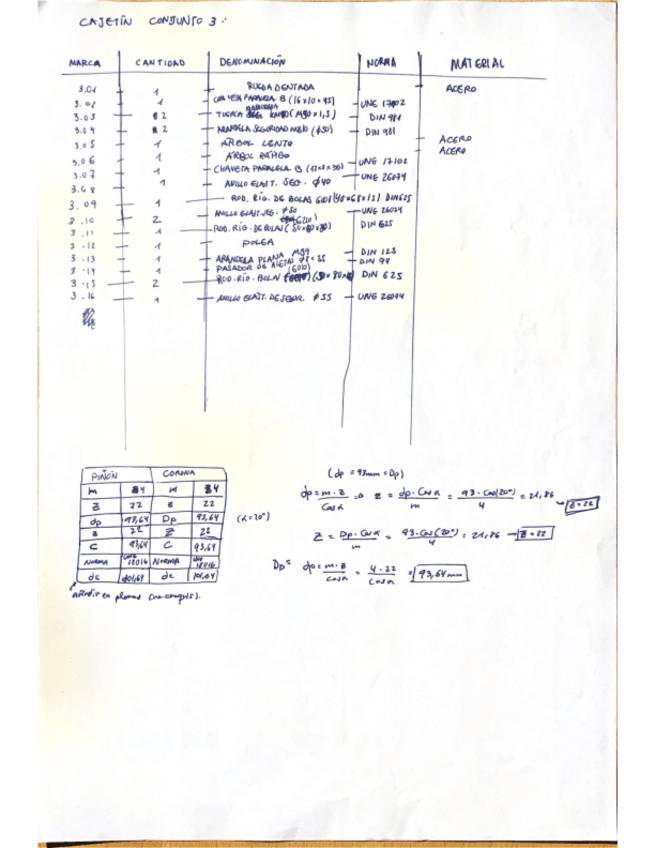 CAJETÍN CONJUNTO 3:
MARCA CANTIDAD DENOMINACIÓN NORMA MATERIAL
3.01 1 RUEDA DENTADA ACERO
3.02 1 CHAVETA PARALELA B (16x10x45) UNE 17102
3.03 2 TUERCA (M50x1,5) DIN 981
3.04 2 ARANDELA SEGURIDAD (φ50) DIN 981
3.05 1 ÁRBOL LENTO ACERO
3.06 1 ÁRBOL RÁPIDO ACERO
3.07 1 CHAVETA PARALELA B UNE 17102
3.08 1 ANILLO ELAST. SEG. φ40 UNE 26074
3.09 1 ROD. RIG. DE BOLAS 6008 (40x68x15) DIN 625
3.10 2 ANILLO ELAST. SEG. UNE 26074
3.11 1 ROD. RIG. DE BOLAS DIN 625
3.12 1 POLEA
3.13 1 ARANDELA PLANA M39 DIN 125
3.14 1 PASADOR DE ALETAS DIN 94
3.15 2 ROD. RIG. BOLAS (6010) DIN 625
3.16 1 ANILLO ELAST. DE SEGUR. φ55 UNE 26074
PIÑÓN CORONA
m 4 M 4
Z 22 z 22
dp 93,64 Dp 93,64
z 22 Z 22
C 93,64 C 93,64
NORMA UNE 18016 NORMA UNE 18016
de 101,64 de 101,64
añadir en planos
(α=20°)
(dp = 93mm = Dp)
dp = m·z / Cos α ⇒ z = dp·Cos α / m = 93·Cos(20°) / 4 = 21,86 → Z=22
Z = Dp·Cos α / m = 93·Cos(20°) / 4 = 21,86 → Z=22
Dp = dp = m·z / cos α = 4·22 / cos α = 93,64 mm